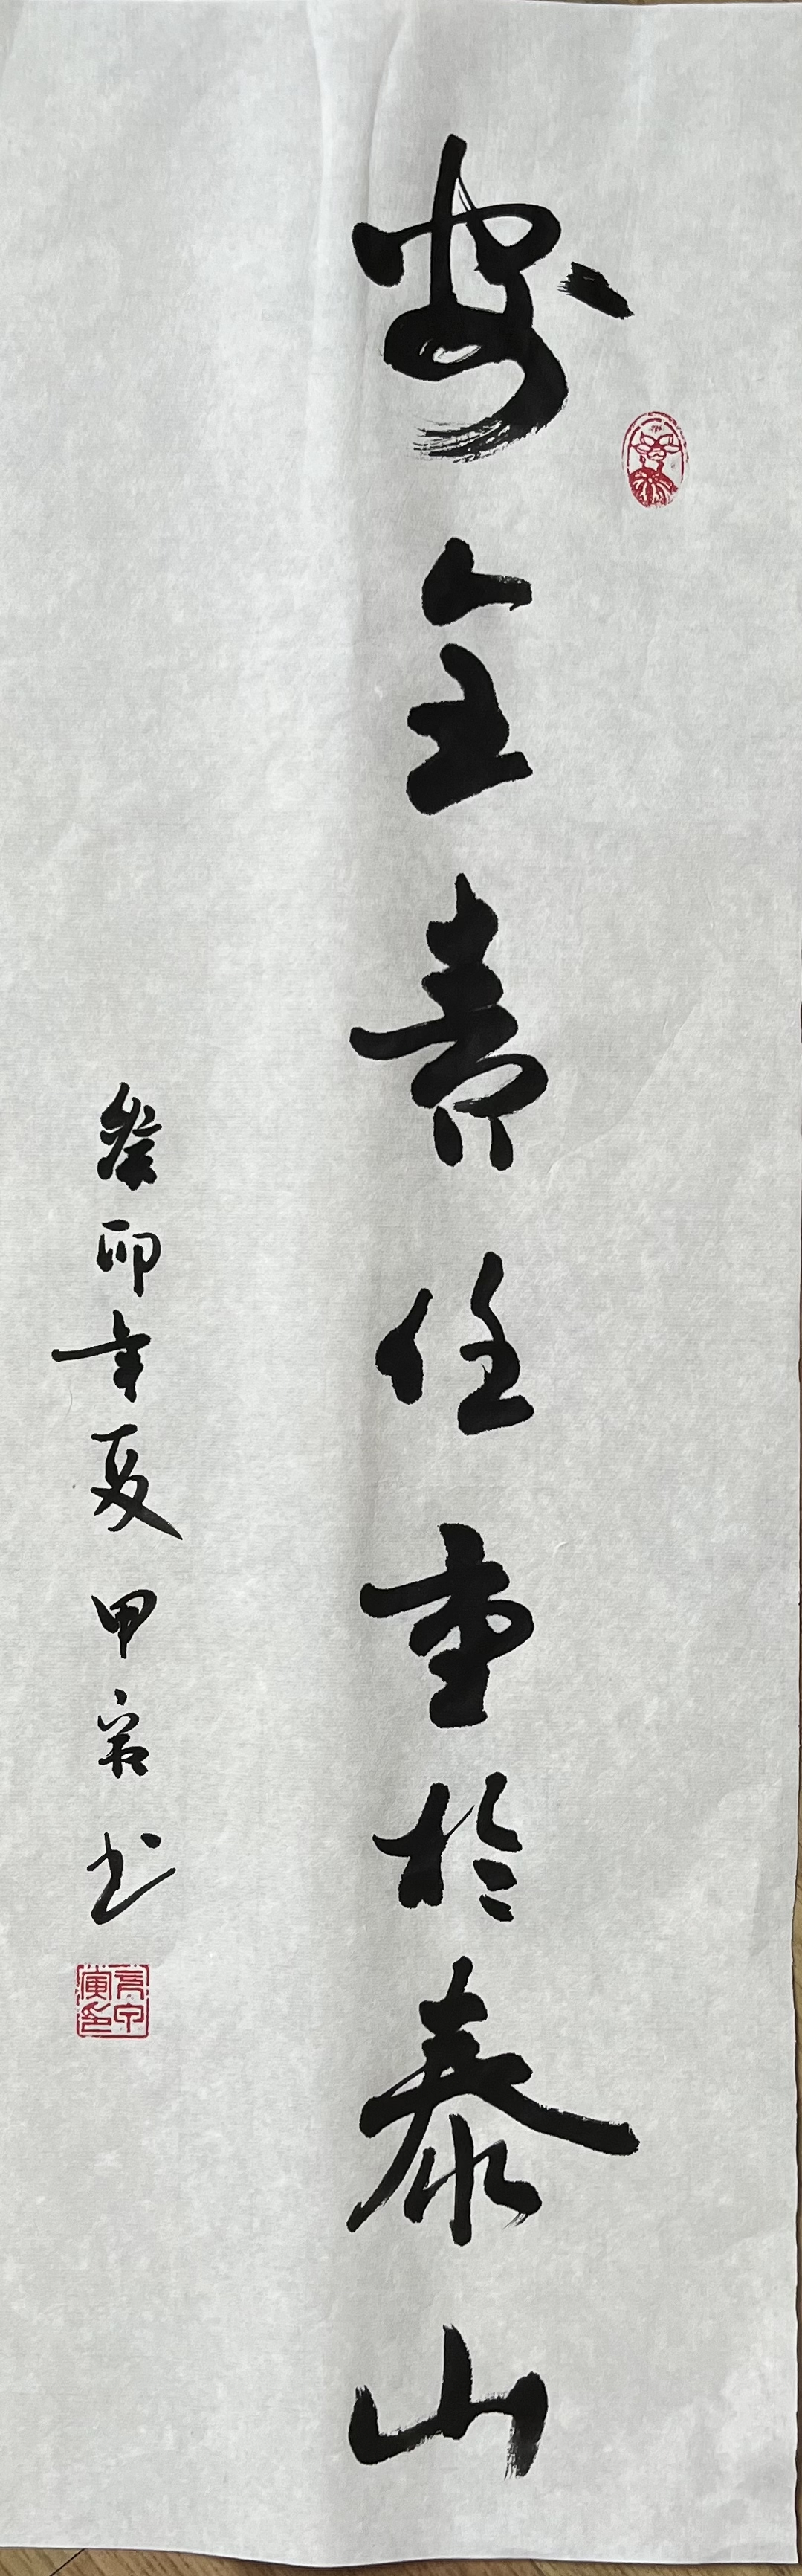 安全責任重於泰山
癸卯年夏甲寅書